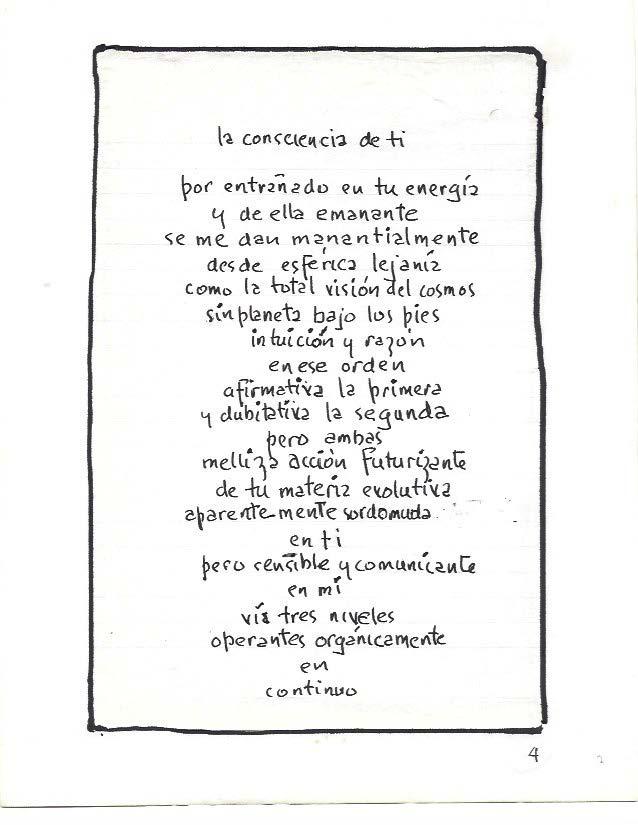 la consciencia de ti
por entrañado en tu energía
y de ella emanante
se me dan manantialmente
desde esférica lejanía
como la total visión del cosmos
sin planeta bajo los pies
intuición y razón
en ese orden
afirmativa la primera
y dubitativa la segunda
pero ambas
melliza acción futurizante
de tu materia evolutiva
aparente-mente sordomuda
en ti
pero sensible y comunicante
en mí
vía tres niveles
operantes orgánicamente
en
continuo
4
2